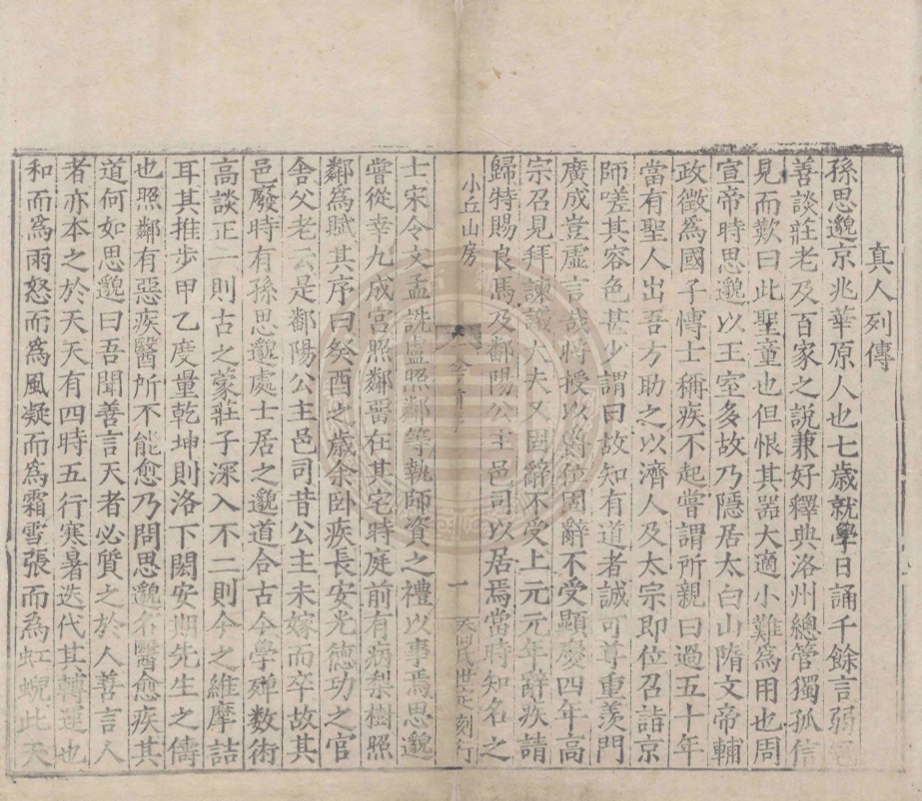 真人列傳
孫思邈京兆華原人也七歲就學日誦千餘言弱冠
善談莊老及百家之說兼好釋典洛州總管獨孤信
見而歎曰此聖童也但恨其器大適小難為用也周
宣帝時思邈以王室多故乃隱居太白山隋文帝輔
政徵為國子博士稱疾不起嘗謂所親曰過五十年
當有聖人出吾方助之以濟人及太宗即位召詣京
師嗟其容色甚少謂曰故知有道者誠可尊重羨門
廣成豈虛言哉將授以爵位固辭不受顯慶四年高
宗召見拜諫議大夫又固辭不受上元元年辭疾請
歸特賜良馬及鄱陽公主邑司以居焉當時知名之
小丘山房
一
刻行
士宋令文孟詵盧照鄰等執師資之禮以事焉思邈
嘗從幸九成宮照鄰畱在其宅時庭前有病梨樹照
鄰為賦其序曰癸酉之歲余臥疾長安光德坊之官
舍父老云是鄱陽公主邑司昔公主未嫁而卒故其
邑廢時有孫思邈處士居之邈道合古今學殫数術
高談正一則古之蒙莊子深入不二則今之維摩詰
耳其推步甲乙度量乾坤則洛下閎安期先生之儔
也照鄰有惡疾醫所不能愈乃問思邈名醫愈疾其
道何如思邈曰吾聞善言天者必質之於人善言人
者亦本之於天天有四時五行寒暑迭代其轉運也
和而為雨怒而為風凝而為霜雪張而為虹蜺此天